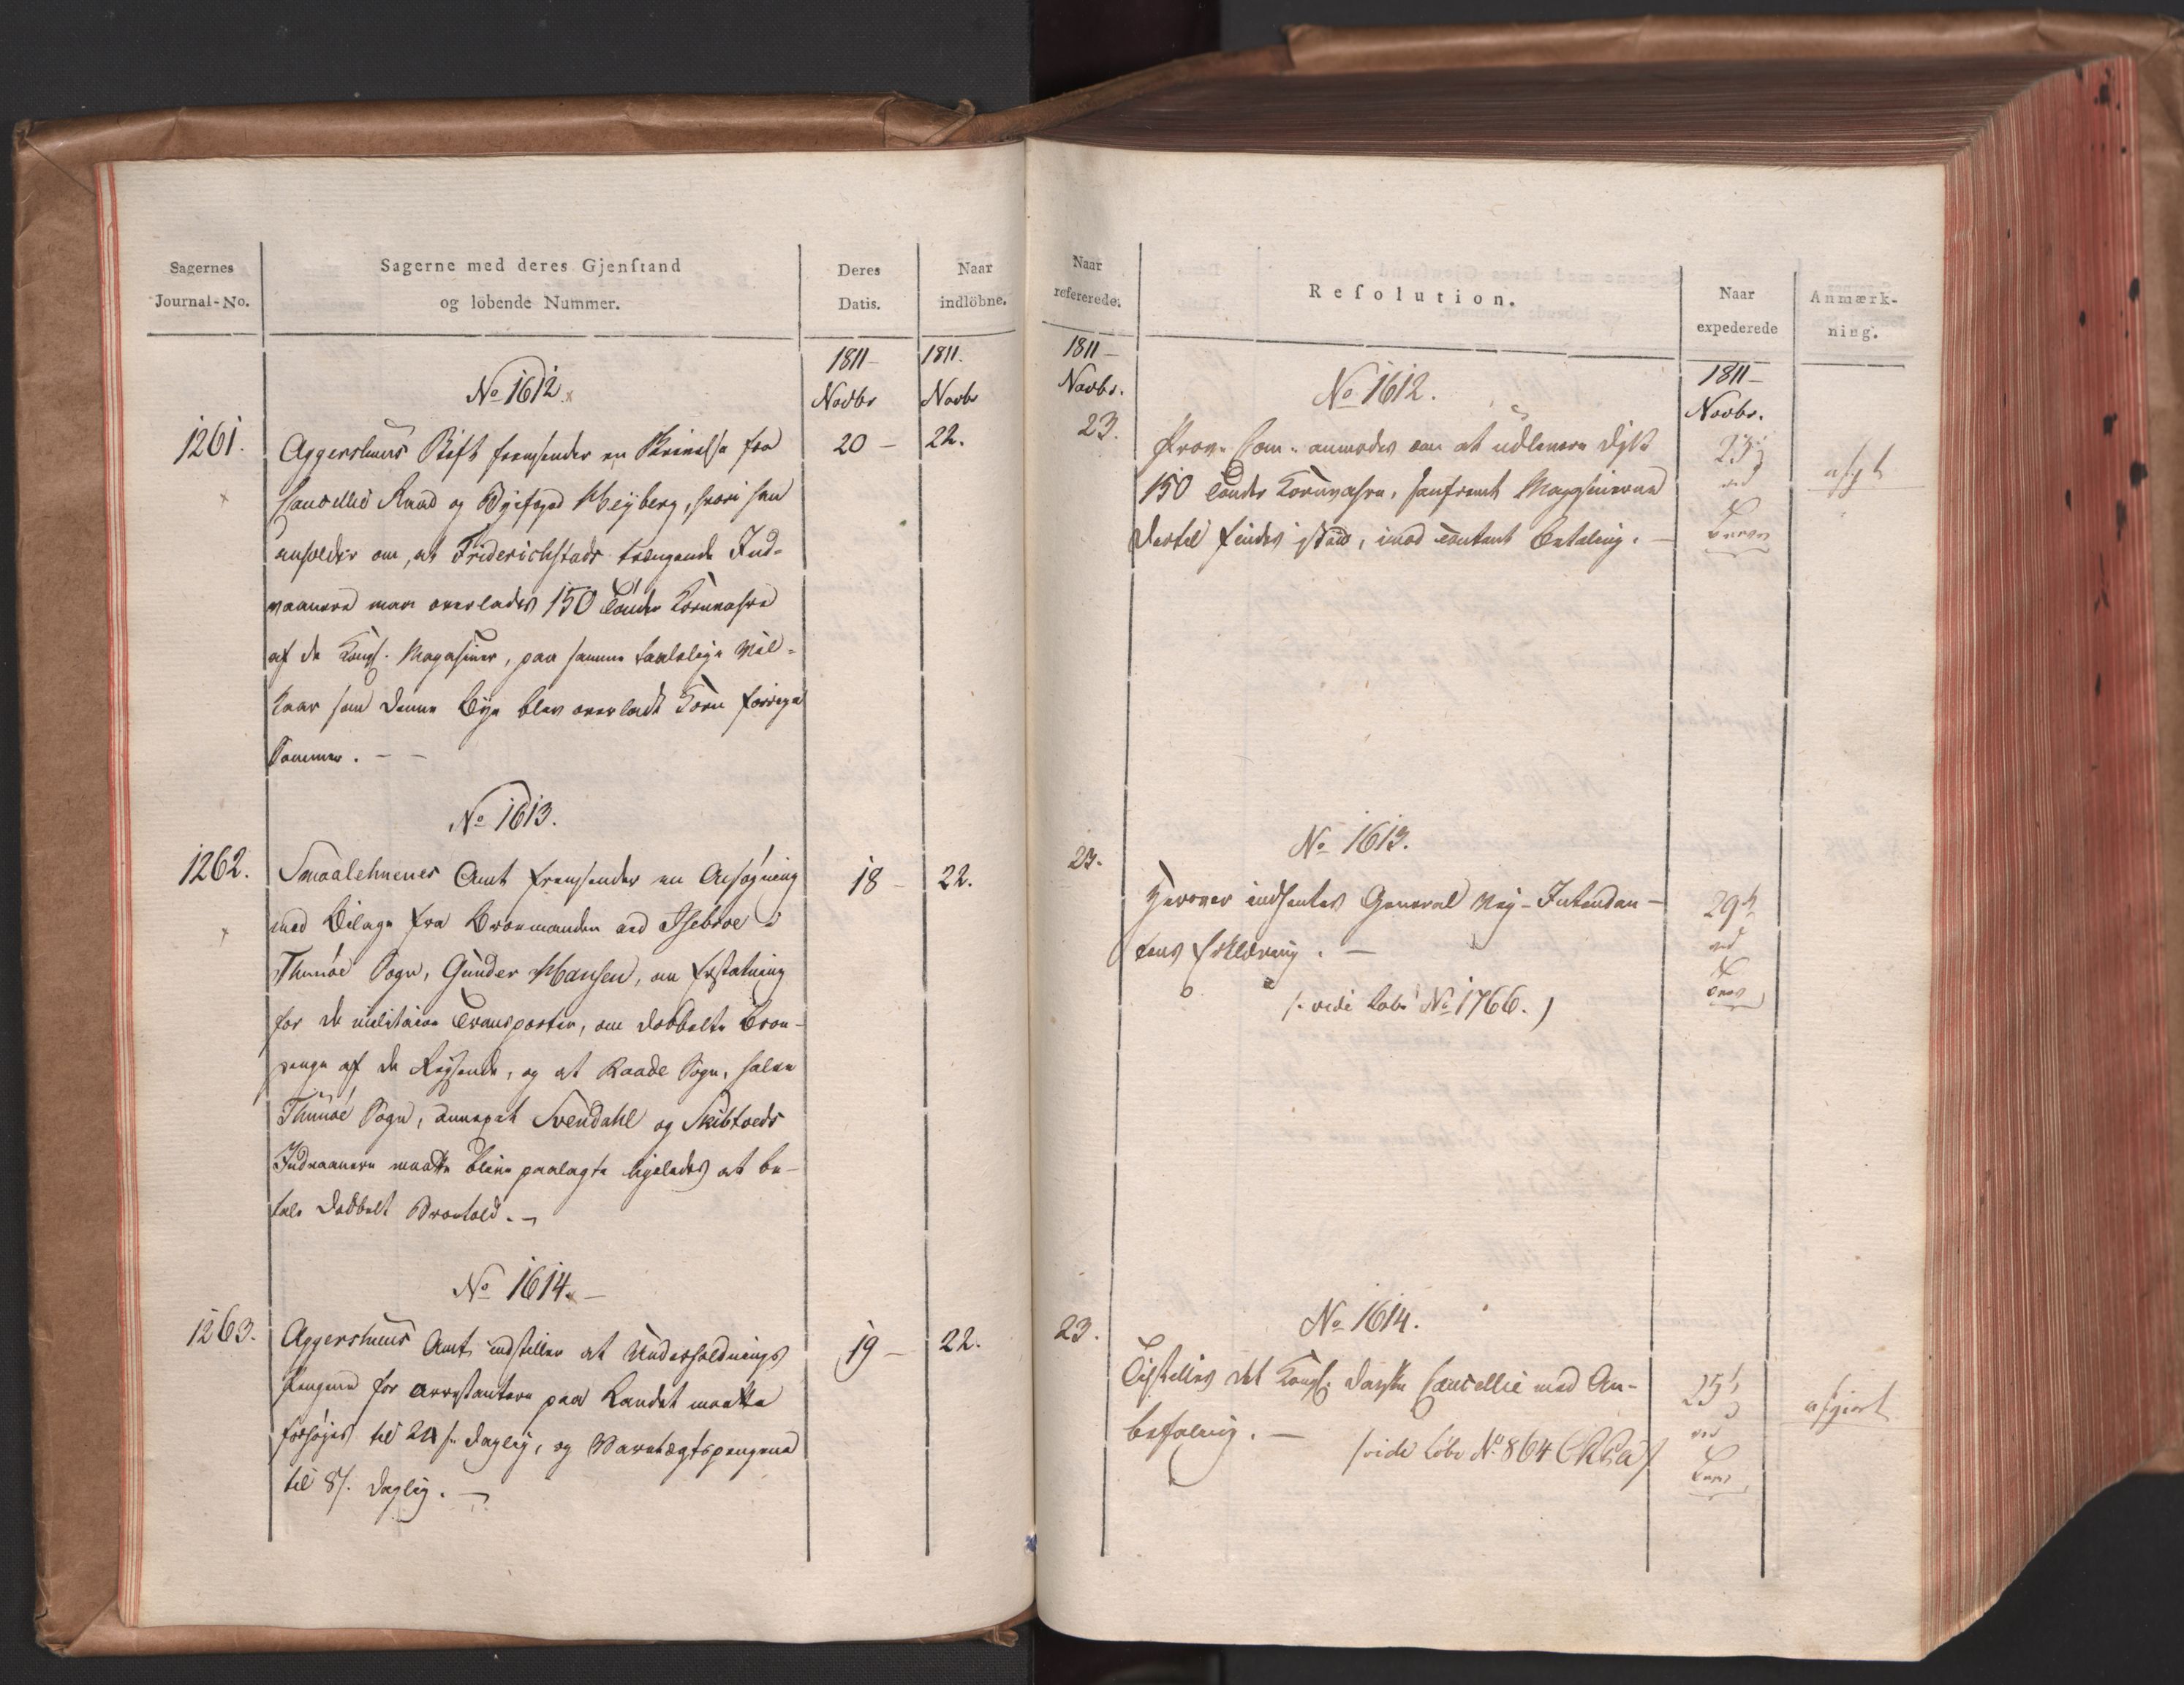 Sagernes
Journal-No.
Sagerne med deres Gjenstand
og löbende Nummer.
Deres
Datis.
Naar
indlöbne.
1811 –
Novbr
1811.
Novbr
No 1612.
1261.
Aggershuus Stift fremsender en Skrivelse fra
Cancellie Raad og Byefoged Heyberg, hvori han
anholder om, at Friderichstads trængende Ind-
vaanere maae overlades 150 Tønder Kornvahre
af de Kongl. Magasiner, paa samme taalelige Vil-
kaar som denne Bye blev overladt Korn forrige
Sommer. –
20 –
22.
No 1613.
1262.
Smaalehnenes Amt fremsender en Ansøgning
med Bilage fra Broemanden ved Isebroe i
Thunøe Sogn, Gunder Hansen, om Erstatning
for de militaire Transporter, om dobbelte Broe-
penge af de Reysende, og at Raade Sogn, halve
Thunøe Sogn, Svendahl og Skibtveds
Indvaanere maatte blive paalagte ligeledes at be-
tale dobbelt Broetold. –
18 –
22.
No 1614. –
1263.
Aggershuus Amt indstiller at Underholdnings
Pengene for Arrestantere paa Landet maatte
forhøjes til 24 s. daglig, og Varetægtspengene
til 8 s. daglig. –
19 –
22.
Naar
refererede.
Resolution.
Naar
expederede
Anmærk-
ning.
1811 –
Novbr.
1811 –
Novbr.
No 1612.
23.
Prov. Com. anmodes om at udlevere
150 Tønder Kornvahre, saafremt Magasinerne
dertil findes istand, imod contant Betaling. –
23
ved
Brev
afgt
No 1613.
23.
Herover indhentes General Vej-Intendan-
tens Erklæring. –
/: vide Løbe No 1766. )
29
ved
Brev
No 1614.
23.
Tilstilles det Kongl. danske Cancellie med An-
befaling. –
/vide Løbe No 864
25
ved
Brev
afgiort